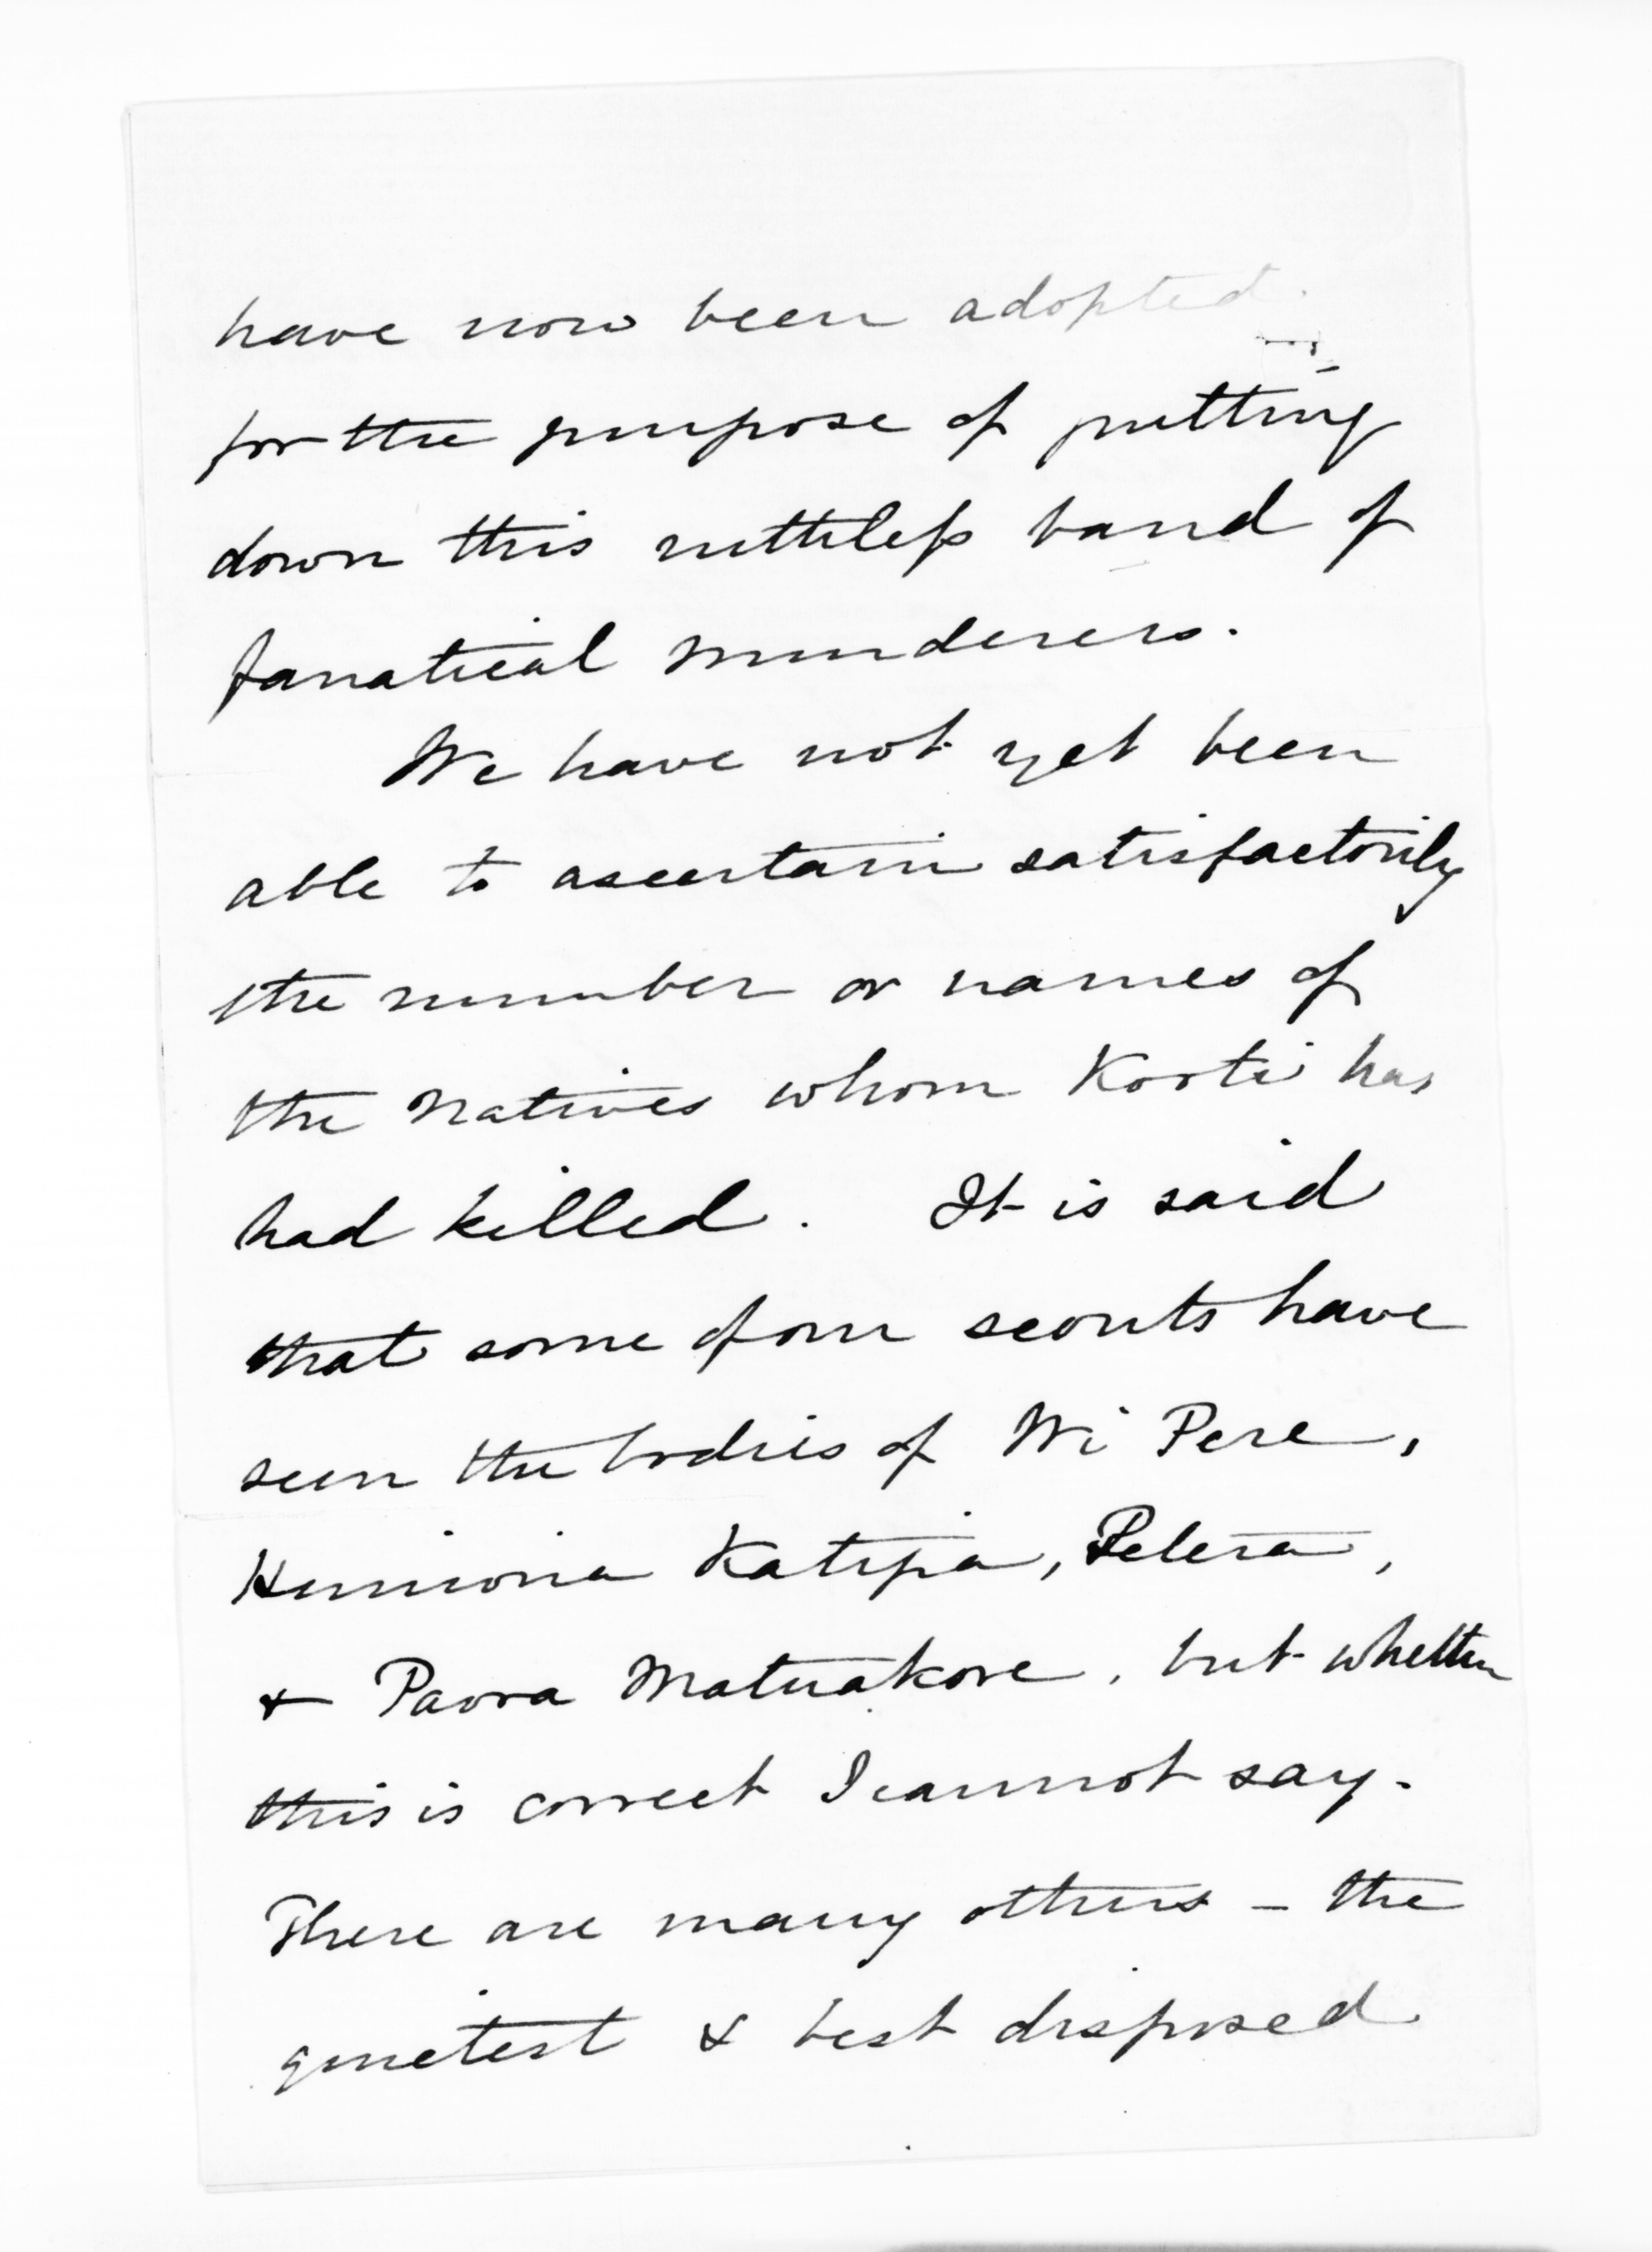 have now been adopted
for the purpose of putting
down this ruthless band of
fanatical murderers.
We have not yet been
able to ascertain satisfactorily
the number or names of
the natives whom Kooti has
had killed. It is said
that some of our scouts have
seen the bodies of Wi Pere,
Katipa, Pelera,
& Paora Matuakore, but whether
this is correct I cannot say.
There are many others – the
quietest & best disposed